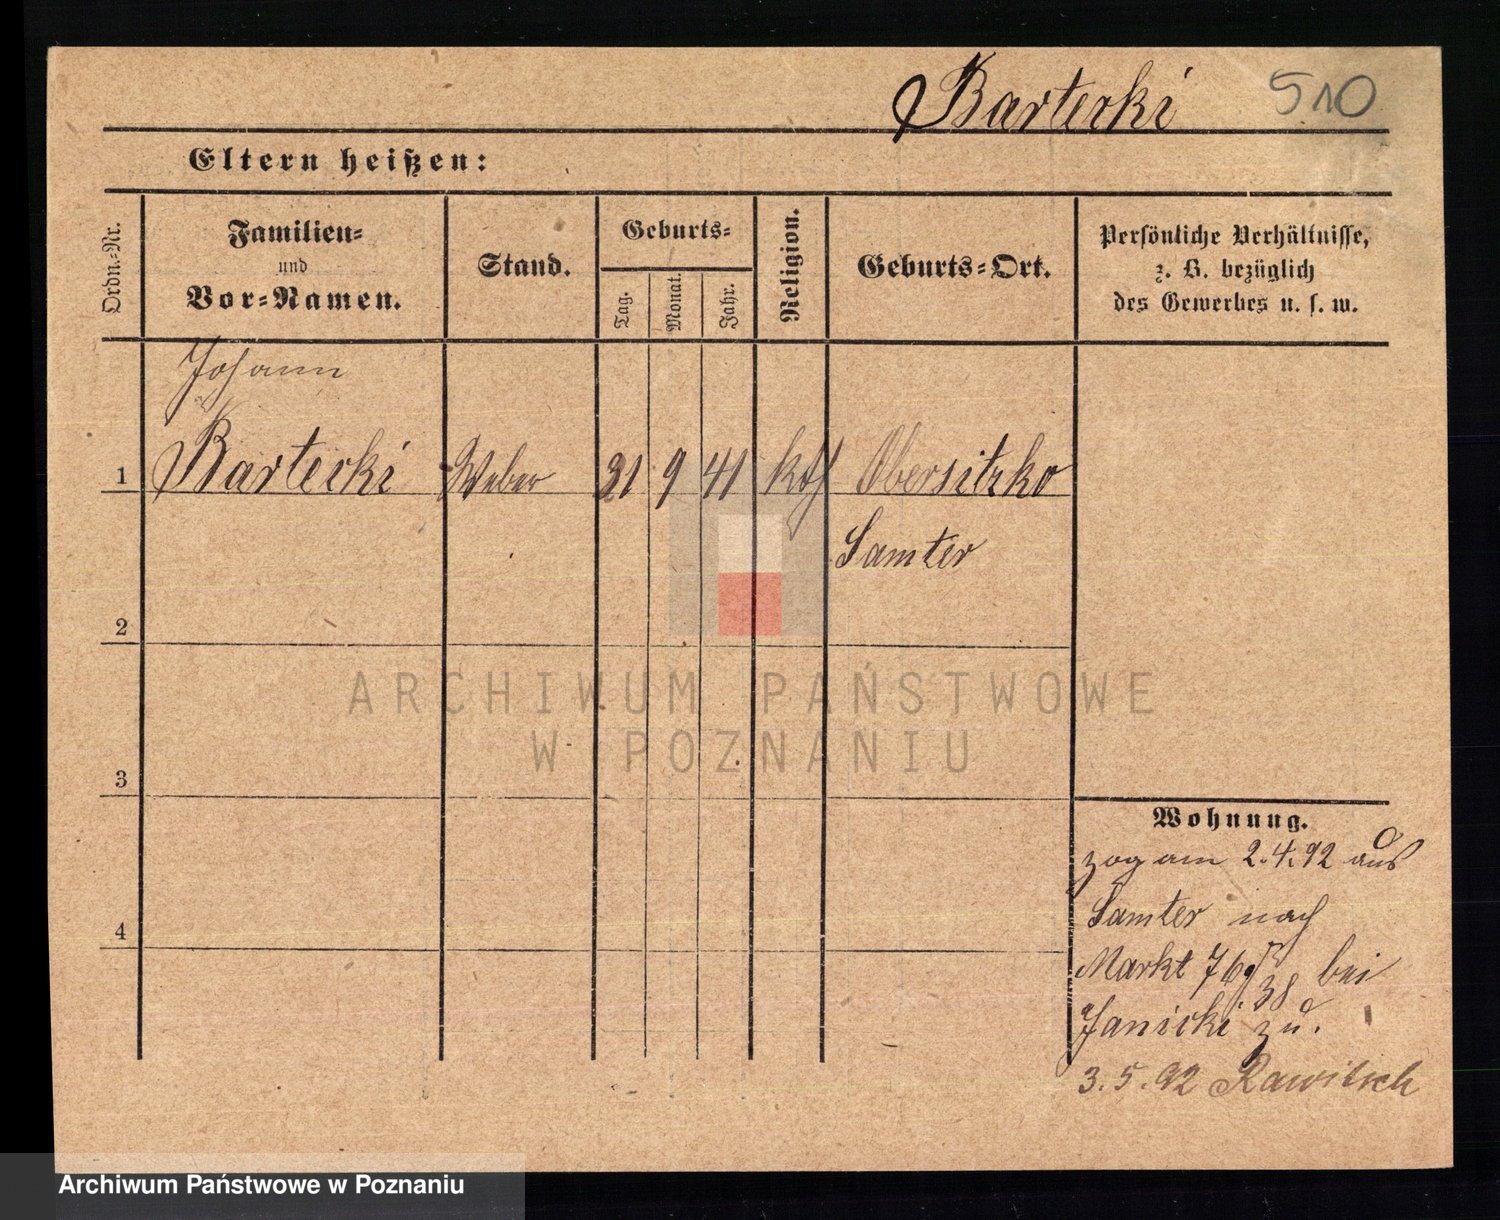 Bartecki 510
Eltern heißen:
Ordn.-Nr.
Familien-
und
Vor-Namen.
Stand.
Geburts-
Tag.
Monat.
Jahr.
Religion.
Geburts-Ort.
Persönliche Verhältnisse,
z. B. bezüglich
des Gewerbes u. s. w.
Johann
1 Bartecki Weber 21 9 41 kath Obersitzko
Samter
2
3
4
ARCHIWUM PAŃSTWOWE
W POZNANIU
Wohnung.
zog am 2.4.92 aus
Samter nach
Markt 76 bei
Janicki zu.
3.5.92 Rawitsch
Archiwum Państwowe w Poznaniu